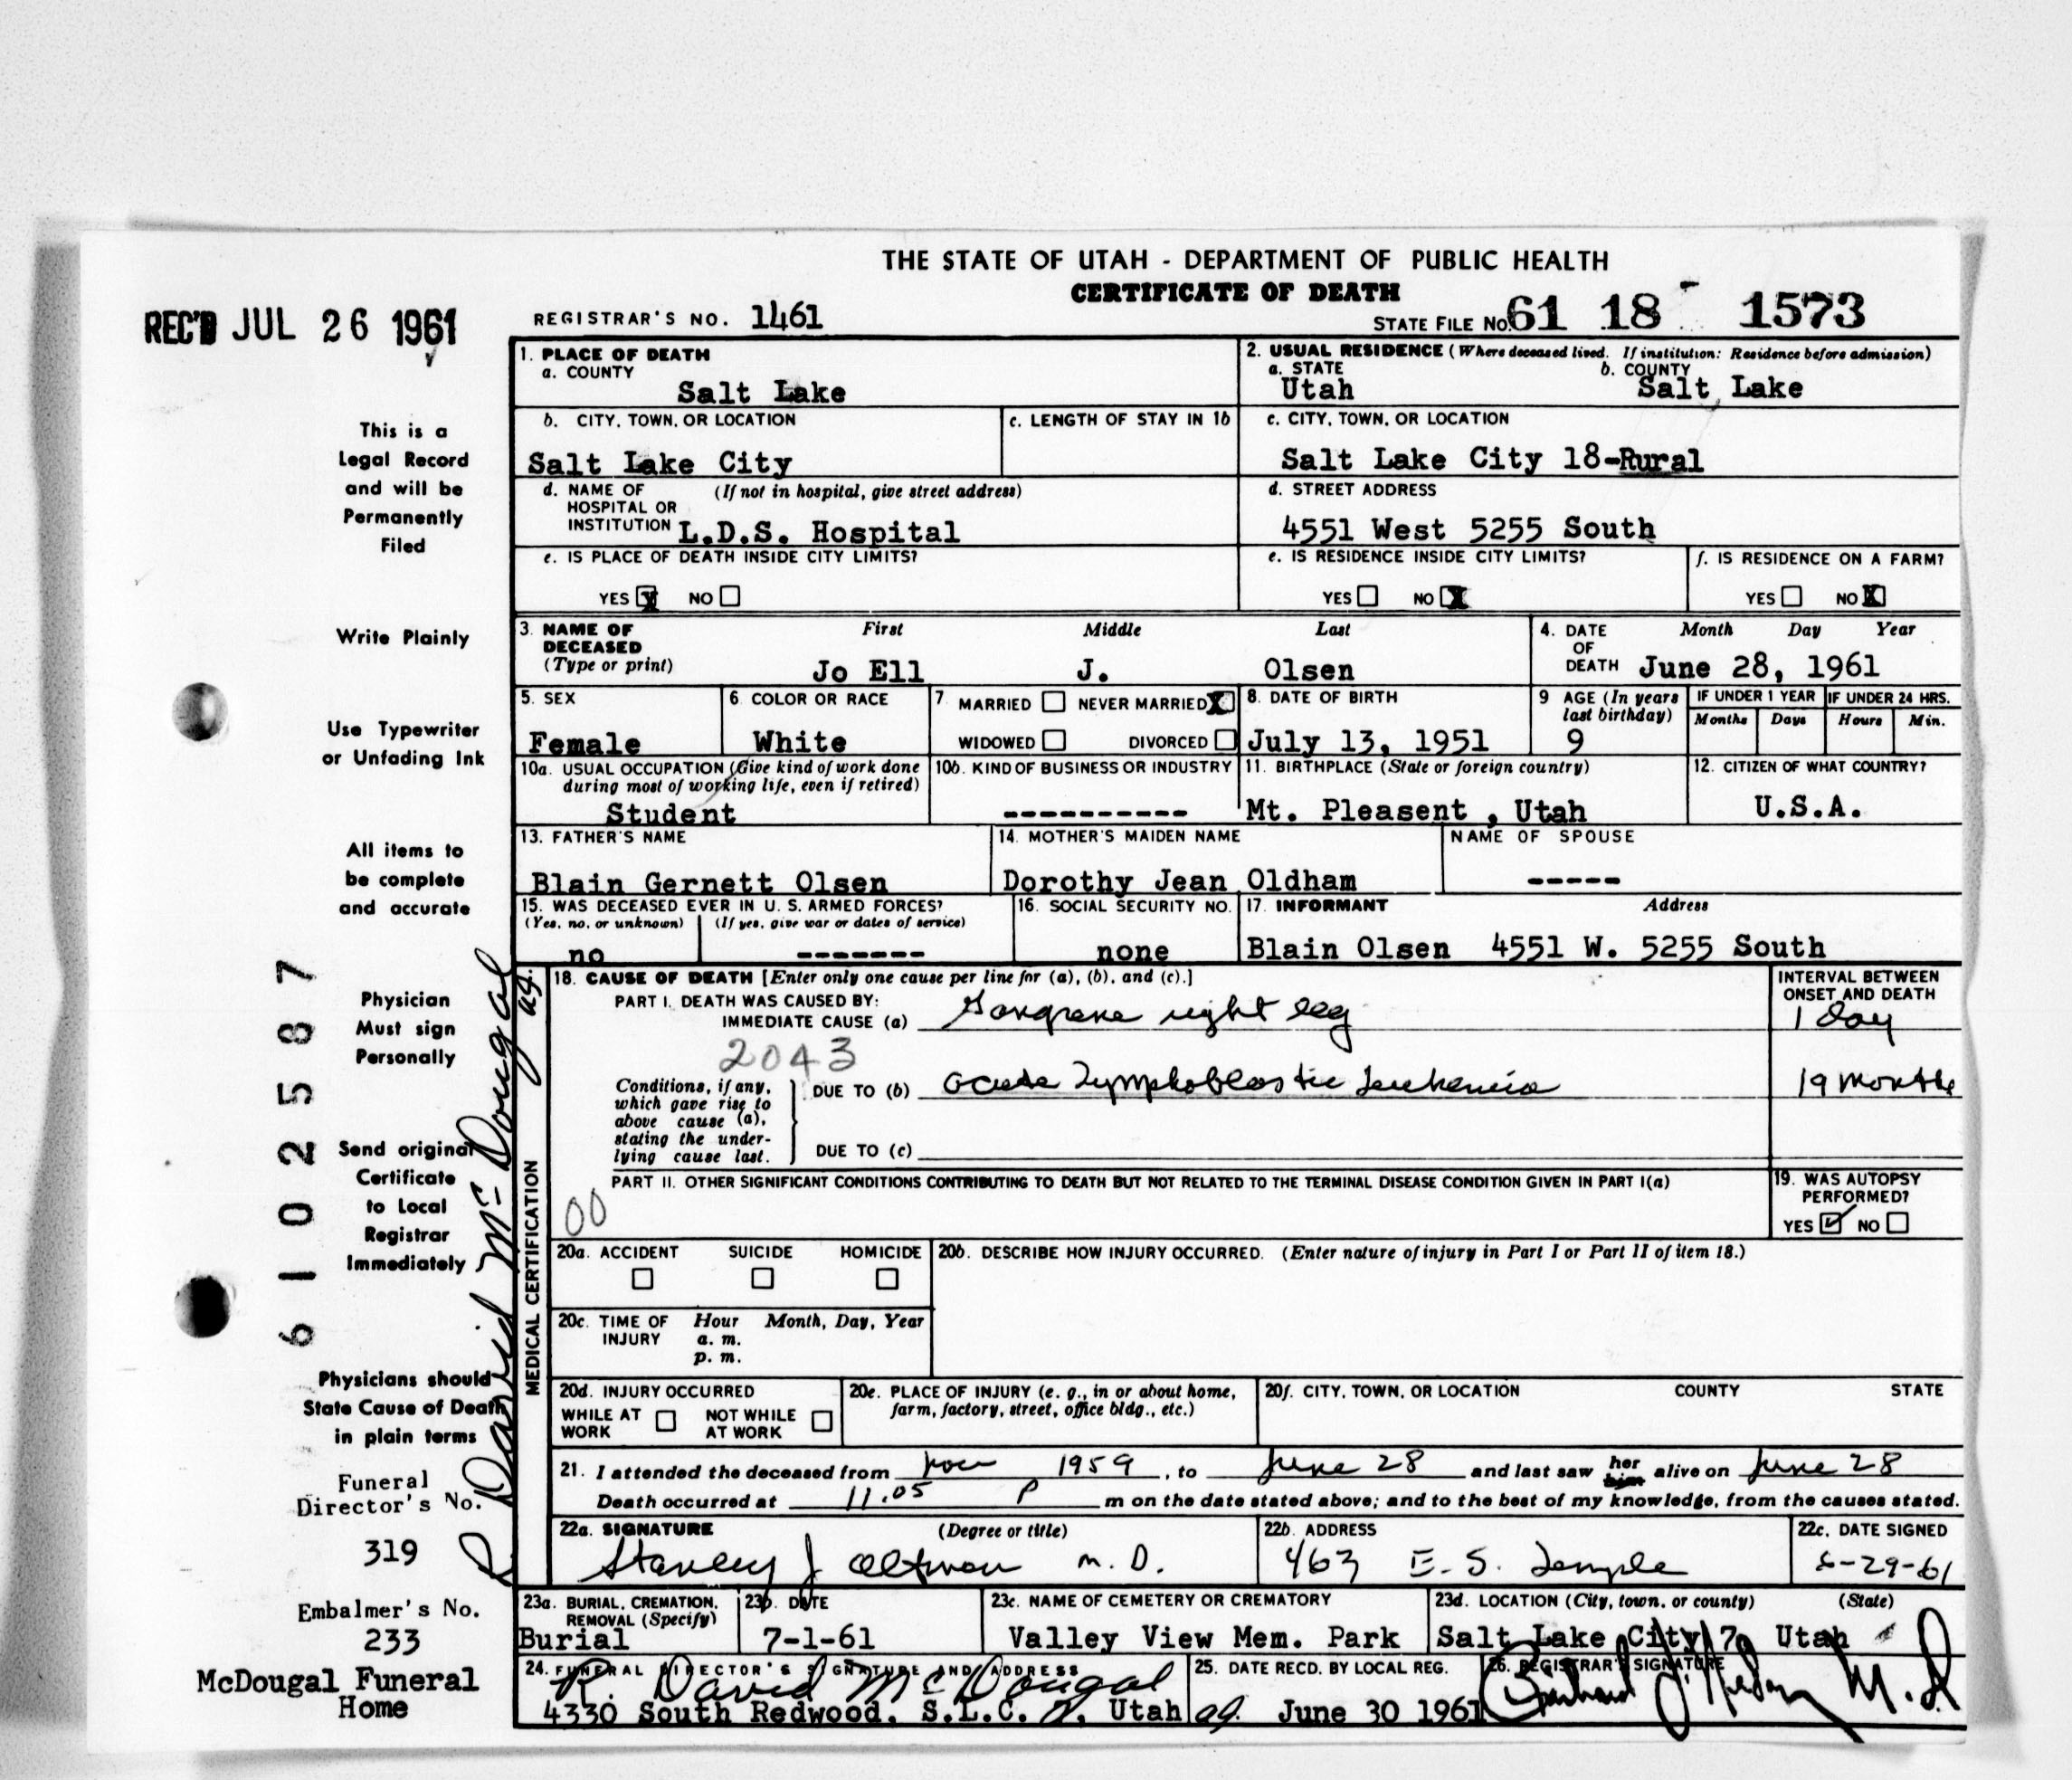 THE STATE OF UTAH - DEPARTMENT OF PUBLIC HEALTH
CERTIFICATE OF DEATH
REC'D JUL 26 1961
REGISTRAR'S NO. 1461
STATE FILE NO. 61 18 1573
1. PLACE OF DEATH
a. COUNTY
Salt Lake
2. USUAL RESIDENCE (Where deceased lived. If institution: Residence before admission)
a. STATE b. COUNTY
Utah Salt Lake
b. CITY, TOWN, OR LOCATION
Salt Lake City
c. LENGTH OF STAY IN 1b
c. CITY, TOWN, OR LOCATION
Salt Lake City 18-Rural
d. NAME OF (If not in hospital, give street address)
HOSPITAL OR
INSTITUTION L.D.S. Hospital
d. STREET ADDRESS
4551 West 5255 South
e. IS PLACE OF DEATH INSIDE CITY LIMITS?
YES X NO
e. IS RESIDENCE INSIDE CITY LIMITS?
YES NO X
f. IS RESIDENCE ON A FARM?
YES NO X
3. NAME OF First Middle Last
DECEASED
(Type or print) Jo Ell J. Olsen
4. DATE Month Day Year
OF
DEATH June 28, 1961
5. SEX
Female
6 COLOR OR RACE
White
7 MARRIED NEVER MARRIED X
WIDOWED DIVORCED
8. DATE OF BIRTH
July 13, 1951
9 AGE (In years
last birthday)
9
IF UNDER 1 YEAR
Months Days
IF UNDER 24 HRS.
Hours Min.
10a. USUAL OCCUPATION (Give kind of work done
during most of working life, even if retired)
Student
10b. KIND OF BUSINESS OR INDUSTRY
----------
11. BIRTHPLACE (State or foreign country)
Mt. Pleasent , Utah
12. CITIZEN OF WHAT COUNTRY?
U.S.A.
13. FATHER'S NAME
Blain Gernett Olsen
14. MOTHER'S MAIDEN NAME
Dorothy Jean Oldham
NAME OF SPOUSE
-----
15. WAS DECEASED EVER IN U. S. ARMED FORCES?
(Yes, no, or unknown) (If yes, give war or dates of service)
no -------
16. SOCIAL SECURITY NO.
none
17. INFORMANT Address
Blain Olsen 4551 W. 5255 South
18. CAUSE OF DEATH [Enter only one cause per line for (a), (b), and (c).]
PART I. DEATH WAS CAUSED BY:
IMMEDIATE CAUSE (a) Gangrene right leg
2043
Conditions, if any,
which gave rise to
above cause (a),
stating the under-
lying cause last.
DUE TO (b) acute lymphoblastic leukemia
DUE TO (c)
INTERVAL BETWEEN
ONSET AND DEATH
1 day
19 months
PART II. OTHER SIGNIFICANT CONDITIONS CONTRIBUTING TO DEATH BUT NOT RELATED TO THE TERMINAL DISEASE CONDITION GIVEN IN PART I(a)
00
19. WAS AUTOPSY
PERFORMED?
YES ✓ NO
20a. ACCIDENT SUICIDE HOMICIDE
20b. DESCRIBE HOW INJURY OCCURRED. (Enter nature of injury in Part I or Part II of item 18.)
20c. TIME OF Hour Month, Day, Year
INJURY a. m.
p. m.
20d. INJURY OCCURRED
WHILE AT NOT WHILE
WORK AT WORK
20e. PLACE OF INJURY (e. g., in or about home,
farm, factory, street, office bldg., etc.)
20f. CITY, TOWN, OR LOCATION COUNTY STATE
21. I attended the deceased from Nov 1959, to June 28 and last saw her him alive on June 28
Death occurred at 11.05 P m on the date stated above; and to the best of my knowledge, from the causes stated.
22a. SIGNATURE (Degree or title)
Stanley J Altman M. D.
22b. ADDRESS
463 E. S. Temple
22c. DATE SIGNED
6-29-61
23a. BURIAL, CREMATION,
REMOVAL (Specify)
Burial
23b. DATE
7-1-61
23c. NAME OF CEMETERY OR CREMATORY
Valley View Mem. Park
23d. LOCATION (City, town, or county) (State)
Salt Lake City 7, Utah
24. FUNERAL DIRECTOR'S SIGNATURE AND ADDRESS
R. David McDougal
4330 South Redwood, S.L.C. 7, Utah
25. DATE RECD. BY LOCAL REG.
ag. June 30 1961
26. REGISTRAR'S SIGNATURE
M.D.
This is a
Legal Record
and will be
Permanently
Filed
Write Plainly
Use Typewriter
or Unfading Ink
All items to
be complete
and accurate
Physician
Must sign
Personally
Send original
Certificate
to Local
Registrar
Immediately
Physicians should
State Cause of Death
in plain terms
Funeral
Director's No.
319
Embalmer's No.
233
McDougal Funeral
Home
61 02587
R. David McDougal ag.
MEDICAL CERTIFICATION